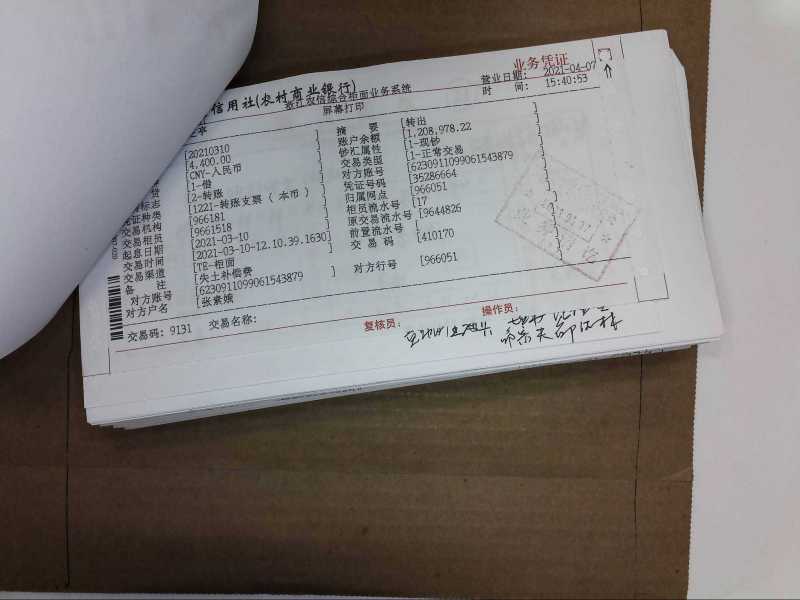 业务凭证
信用社(农村商业银行)
营业日期: 2021-04-07
浙江农信综合柜面业务系统
时 间: 15:40:53
屏幕打印
[20210310 ] 摘 要 [转出 ]
[4,400.00 ] 账户余额 [1,208,978.22
[CNY-人民币 ] 钞汇属性 [1-现钞
[1-借 ] 交易类型 [1-正常交易
[2-转账 ] 对方账号 [6230911099061543879
标志 [1221-转账支票(本币) ] 凭证号码 [35286664
凭证种类 [966181 ] 归属网点 [966051
交易机构 [9661518 ] 柜员流水号 [17
交易柜员 [2021-03-10 ] 原交易流水号 [9644826
起息日期 [2021-03-10-12.10.39.1630] 前置流水号
交易时间 [TE-柜面 ] 交 易 码 [410170
交易渠道 [失土补偿费
备 注 [6230911099061543879 ] 对方行号 [966051
对方账号 [张素娥
对方户名
交易码: 9131 交易名称: 复核员: 操作员: